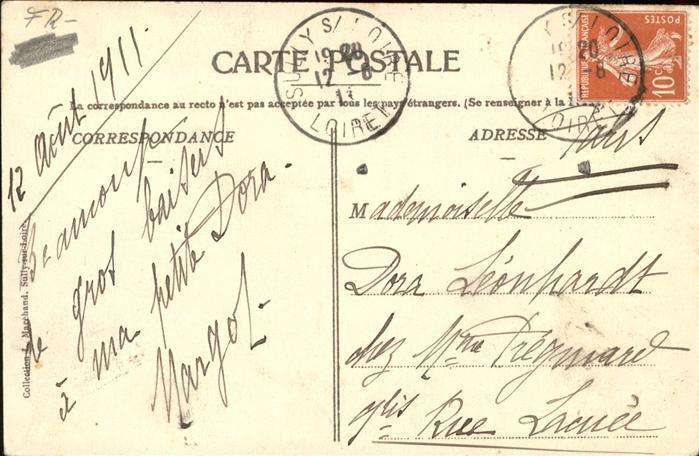 FR-
CARTE POSTALE
La correspondance au recto n'est pas acceptée par tous les pays étrangers. (Se renseigner à la
CORRESPONDANCE
ADRESSE
12 Août 1911.
Beaucoup
de gros baisers
à ma petite Dora.
Margot.
Paris
Mademoiselle
Dora Léonhardt
chez Mme
Rue Lacuée
Collection L. Marchand, Sully-sur-Loire
SULLY S/ LOIRE
19 20
12 -8
11
LOIRET
Y S/ LOIRE
20
12 -8
OIRET
REPUBLIQUE FRANÇAISE
POSTES
10c